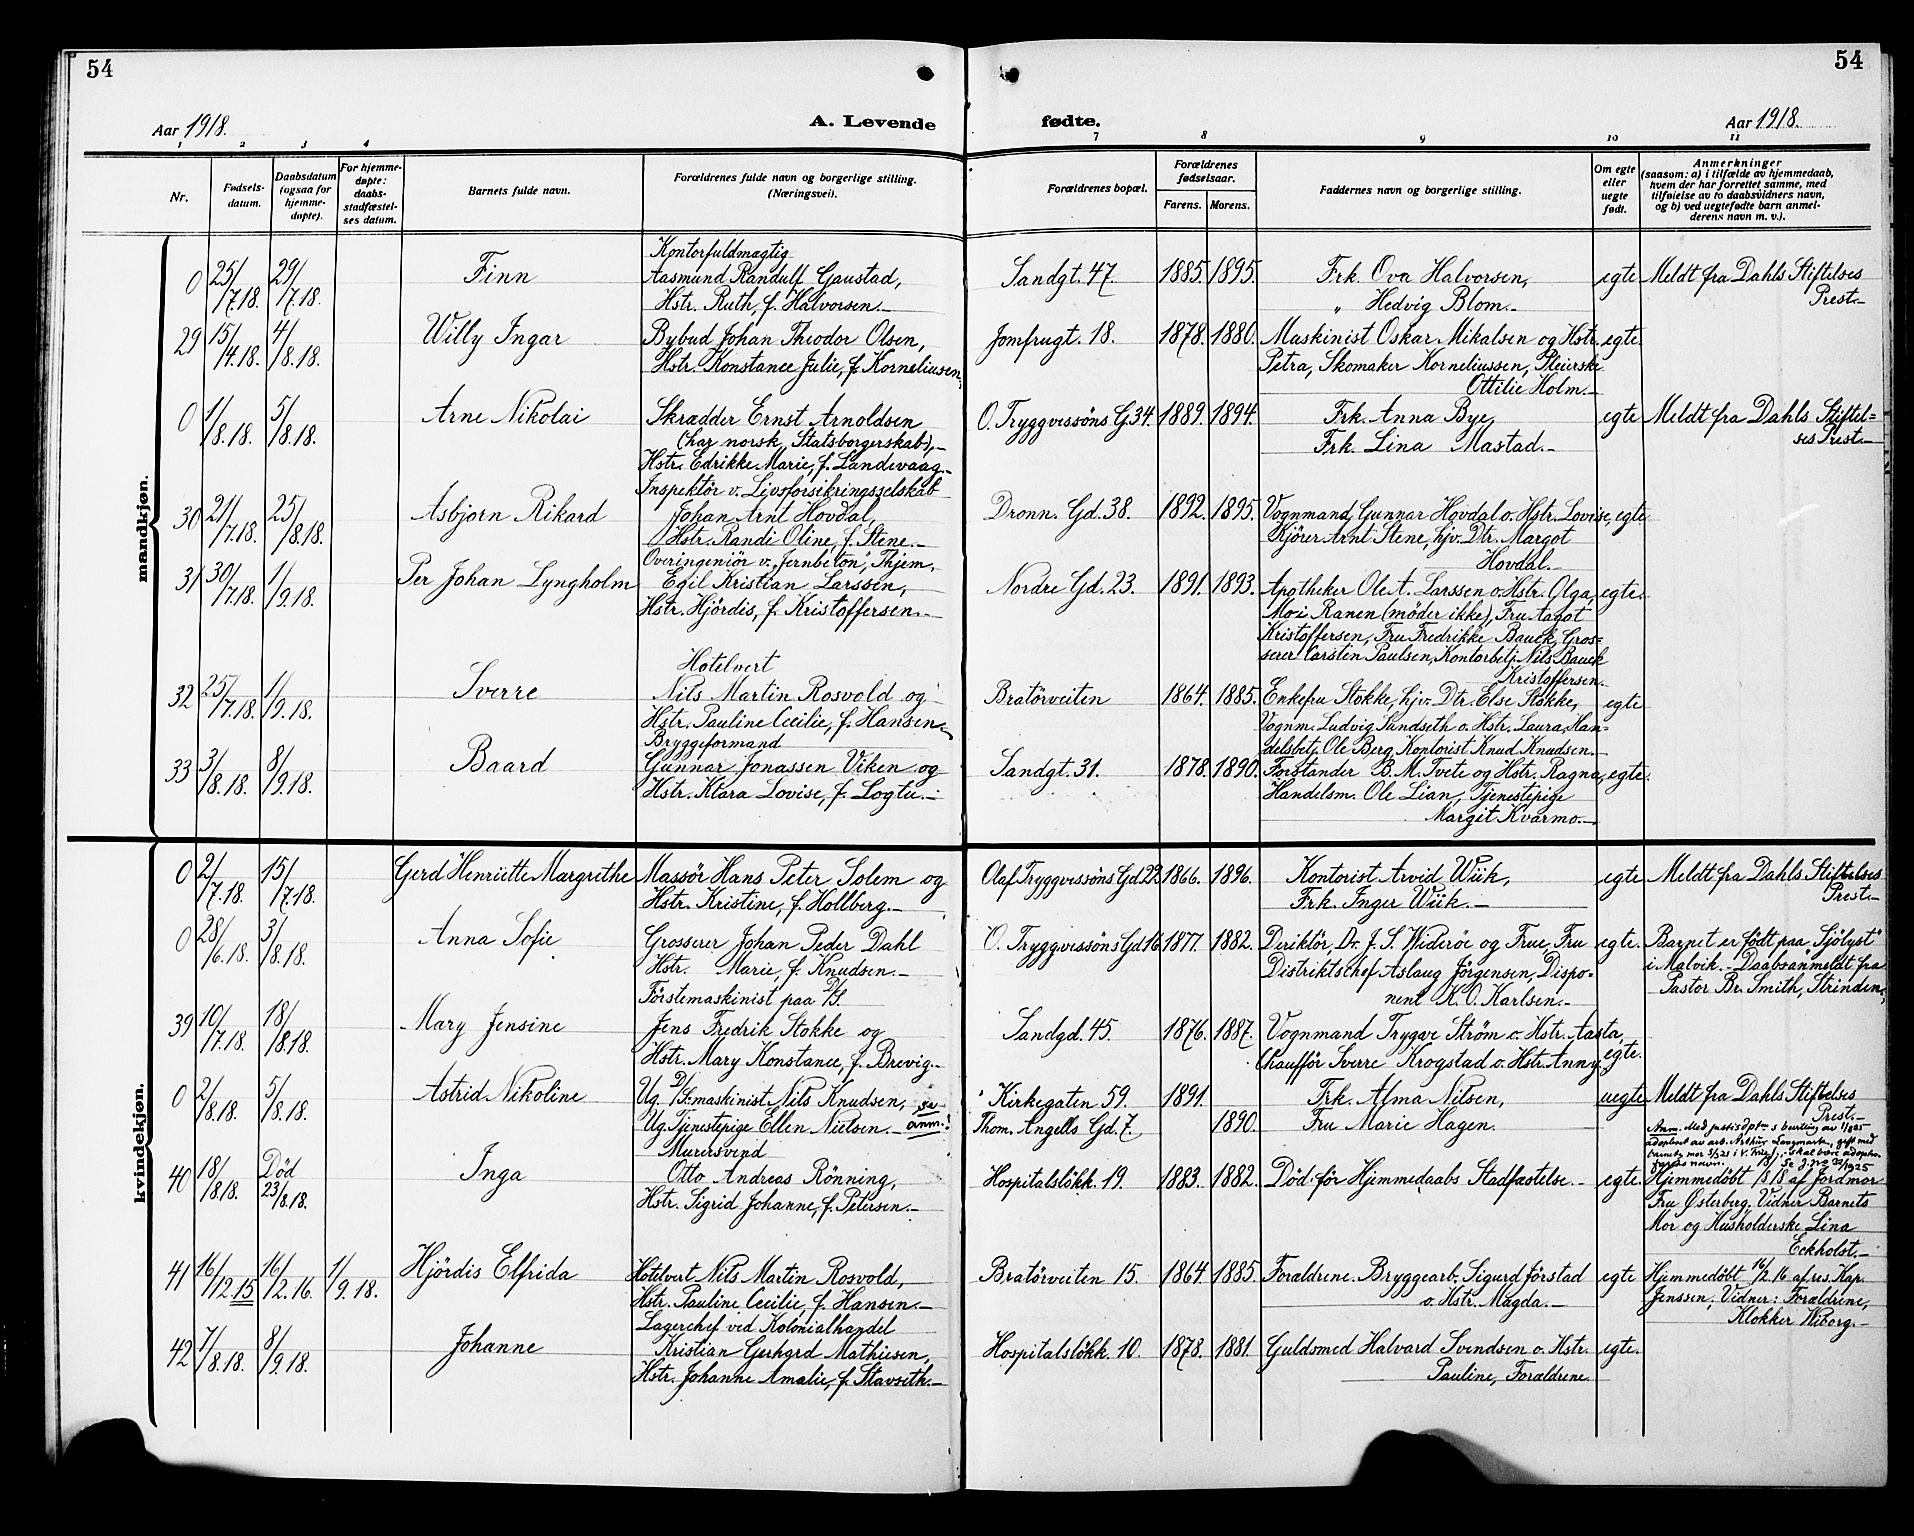 54
54
Aar 1918.
A. Levende
fødte.
Aar 1918.
1 2 3 4 7 8 9 10 11
Nr.
Fødsels-
datum.
Daabsdatum
(ogsaa for
hjemme-
døpte).
For hjemme-
døpte:
daabs-
stadfæstel-
ses datum.
Barnets fulde navn.
Forældrenes fulde navn og borgerlige stilling.
(Næringsvei).
Forældrenes bopæl.
Forældrenes
fødselsaar.
Farens. Morens.
Faddernes navn og borgerlige stilling.
Om egte
eller
uegte
født.
Anmerkninger
(saasom: a) i tilfælde av hjemmedaab,
hvem der har forrettet samme, med
tilføielse av to daabsvidners navn,
og b) ved uegtefødte barn anmel-
derens navn m. v.).
mandkjøn.
0 25/7.18. 29/7.18. Finn
Kontorfuldmægtig
Aasmund Randulf Gaustad,
Hstr. Ruth, f. Halvorsen.-
Sandgt. 47. 1885. 1895.
Frk. Ova Halvorsen,
„ Hedvig Blom.-
egte
Meldt fra Dahls Stiftelses
Prest.-
29 15/4.18. 4/8.18. Willy Ingar
Bybud Johan Theodor Olsen,
Hstr. Konstance Julie, f. Korneliusen,
Jomfrugt. 18. 1878. 1880.
Maskinist Oskar Mikalsen og Hstr.
Petra, Skomaker Korneliussen, Pleierske
Ottilie Holm.-
egte.
0 1/8.18. 5/8.18. Arne Nikolai
Skrædder Ernst Arnoldsen
(har norsk Statsborgerskab),-
Hstr. Edrikke Marie, f. Landevaag.-
O. Tryggvessöns G. 34. 1889. 1894.
Frk. Anna Bye,
Frk. Lina Mastad.-
egte
Meldt fra Dahls Stiftel=
ses Prest.-
30 21/7.18. 25/8.18. Asbjørn Rikard
Inspektör v. Livsforsikringsselskab
Johan Arnt Hovdal,
Hstr. Randi Oline, f. Stene.-
Dronn. Gd. 38. 1892. 1895.
Vognmand Gunnar Hovdal o. Hstr. Lovise,
Kjörer Arnt Stene, hjv. Dtr. Margot
Hovdal.-
egte
31 30/7.18. 1/9.18. Per Johan Lyngholm
Overingeniör v. „Jernbeton“, Thjem,
Egil Kristian Larssen,
Hstr. Hjördis, f. Kristoffersen.-
Nordre Gd. 23. 1891. 1893.
Apotheker Ole A. Larssen o. Hstr. Olga,
Mo i Ranen (möder ikke), Fru Aagot
Kristoffersen, Fru Fredrikke Bauck, Gros=
serer Carsten Paulsen, Kontorbetj. Nils Bauck
Kristoffersen.-
egte.
32 25/7.18. 1/9.18. Sverre
Hotelvert
Nils Martin Rosvold og
Hstr. Pauline Cecilie, f. Hansen.-
Bratörveiten 1864. 1885.
Enkefru Stokke, hjv. Dtr. Else Stokke,
Vognm. Ludvig Sandseth o. Hstr. Laura, Han=
delsbetj. Ole Berg, Kontorist Knud Knudsen.-
egte
33 3/8.18. 8/9.18. Baard
Bryggeformand
Gunnar Jonassen Viken og
Hstr. Klara Lovise, f. Logtu.-
Sandgt. 31. 1878. 1890.
Forstander B. M. Tvete og Hstr. Ragna,
Handelsm. Ole Lian, Tjenestepige
Margit Kvarmo.-
egte.
kvindekjøn.
0 2/7.18. 15/7.18. Gerd Henriette Margrethe
Massör Hans Peter Solem og
Hstr. Kristine, f. Hollberg.-
Olaf Tryggvessöns Gd. 22 1866. 1896.
Kontorist Arvid Wiik,
Frk. Inger Wiik.-
egte
Meldt fra Dahls Stiftelses
Prest.-
0 28/6.18. 3/8.18. Anna Sofie
Grosserer Johan Peder Dahl
Hstr. Marie, f. Knudsen.-
O. Tryggvessöns Gd. 16 1877. 1882.
Direktör, Dr. J. S. Wideröe og Frue, Fru
Distriktschef Aslaug Jörgensen, Dispo-
nent K. O. Karlsen.-
egte.
Barnet er födt paa „Sjölyst“
i Malvik.- Daabsanmeldt fra
Pastor Br. Smith, Strinden.-
39 10/7.18. 18/8.18. Mary Jensine
Förstemaskinist paa D/S.
Jens Fredrik Stokke og
Hstr. Mary Konstance, f. Brevig.-
Sandgd. 45. 1876. 1887.
Vognmand Trygve Ström o. Hstr. Aasta,
Chauffför Sverre Krogstad o. Hstr. Anny.
egte.
0 2/8.18. 5/8.18. Astrid Nikoline
Ug. D/S. maskinist Nils Knudsen,
Ug. Tjenestepige Ellen Nielsen.- se anm.!
Kirkegaten 59. 1891.
Thom. Angells Gd. 7. 1890.
Frk. Alma Nilsen,
Fru Marie Hagen.
uegte
Meldt fra Dahls Stiftelses
Prest.-
Anm. Med justisdpt-s bevilling av 1/8 25
adoptert av arb. Arthur Langmark, gift med
barnets mor 5/3 21 i V. Frue k., skal bære adoptiv-
farens navn. Se J. no 22/1925
40 18/8.18. Död 23/8.18. Inga
Murersvend
Otto Andreas Rönning,
Hstr. Sigrid Johanne, f. Petersen.-
Hospitalslökk. 19. 1883. 1882.
Död för Hjemmedaabs Stadfæstelse.-
egte.
Hjemmedöbt 18/8 18 af Jordmor
Fru Østerberg. Vidner Barnets
Mor og Husholderske Lina
Eckholst.-
41 16/12.15 16/2.16. 1/9.18. Hjördis Elfrida
Hotelvert Nils Martin Rosvold,
Hstr. Pauline Cecilie, f. Hansen.-
Bratörveiten 15. 1864. 1885.
Forældrene. Bryggearb. Sigurd Förstad
o. Hstr. Magda.-
egte
Hjemmedöbt 16/2.16 af res. Kap.
Jenssen, Vidner: Forældrene,
Klokker Wiborg.-
42 7/8.18. 8/9.18. Johanne
Lagerchef ved Kolonialhandel
Kristian Gerhard Mathiesen,
Hstr. Johanne Amalie, f. Stavseth.-
Hospitalslökk. 10. 1878. 1881.
Guldsmed Halvard Svendsen o. Hstr.
Pauline, Forældrene
egte.